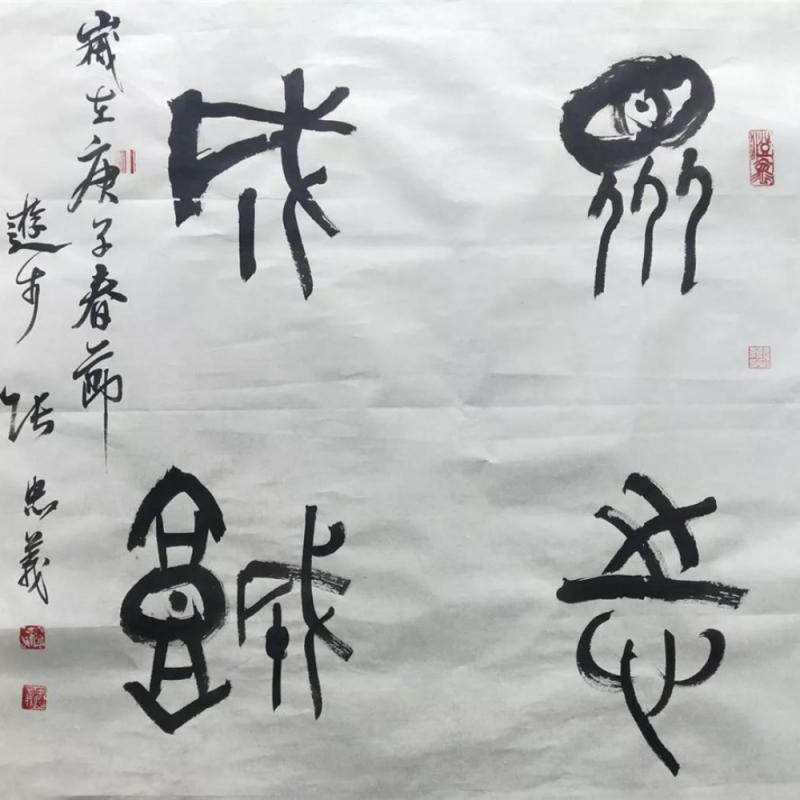 眾志
成城
歲在庚子春節
遊步張忠義